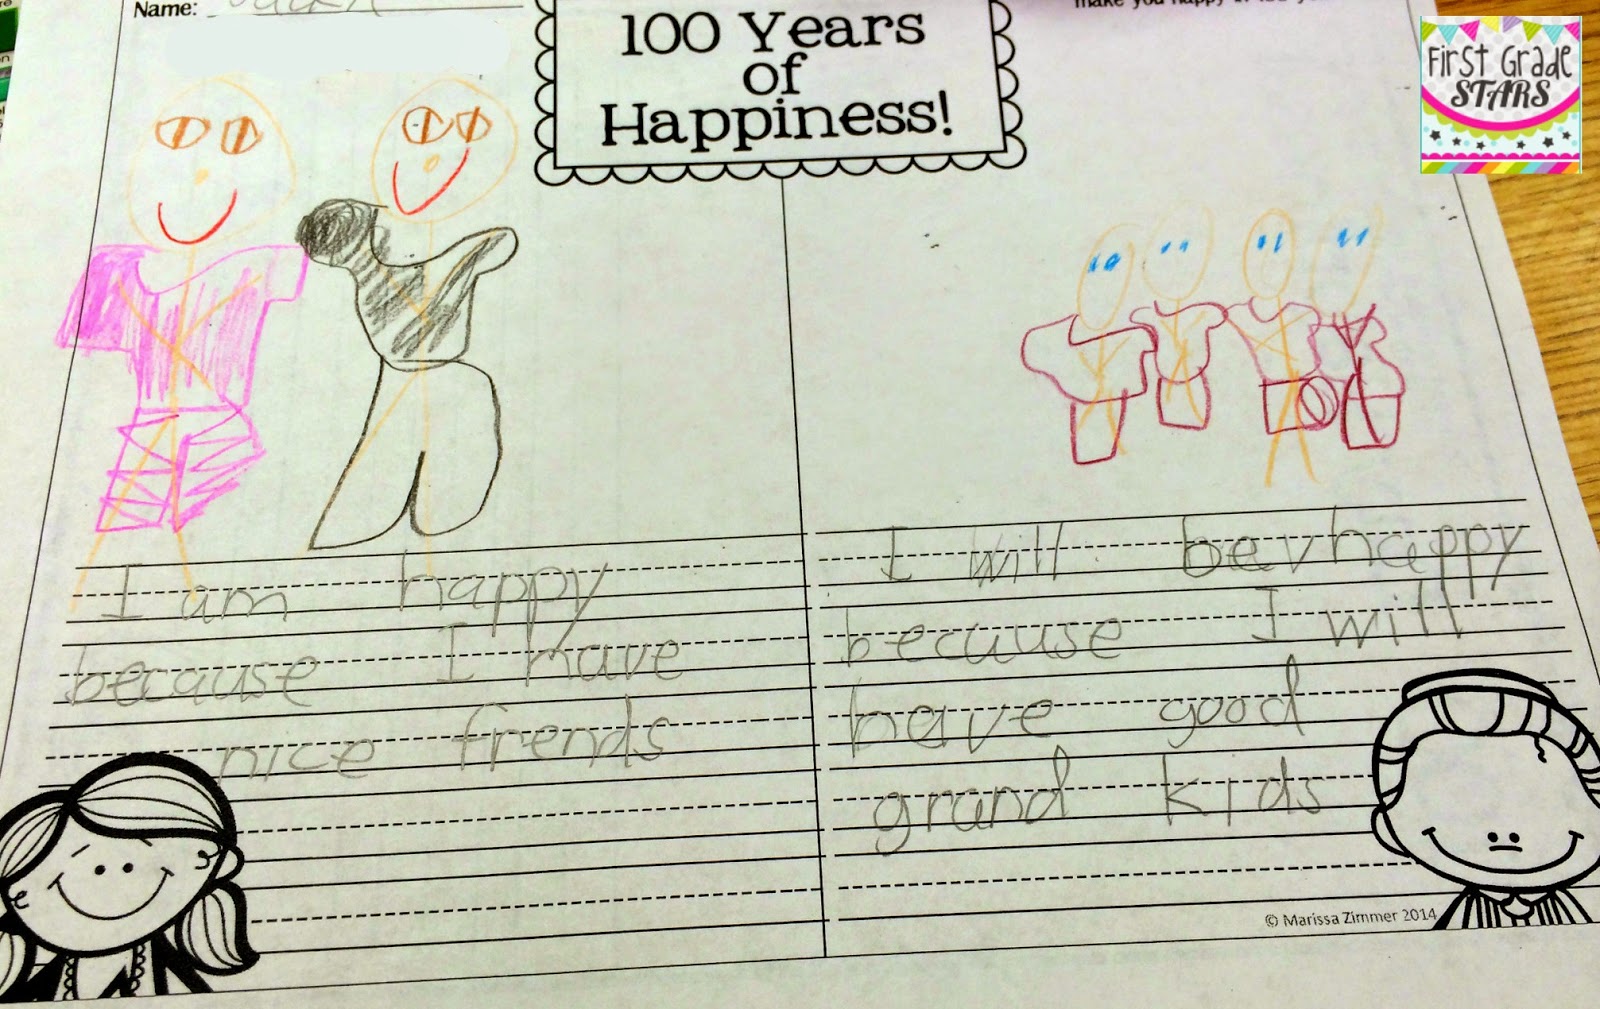 Name:
100 Years
of
Happiness!
First Grade
STARS
I am happy
because I have
nice frends
I will bev happy
because I will
have good
grand kids
© Marissa Zimmer 2014